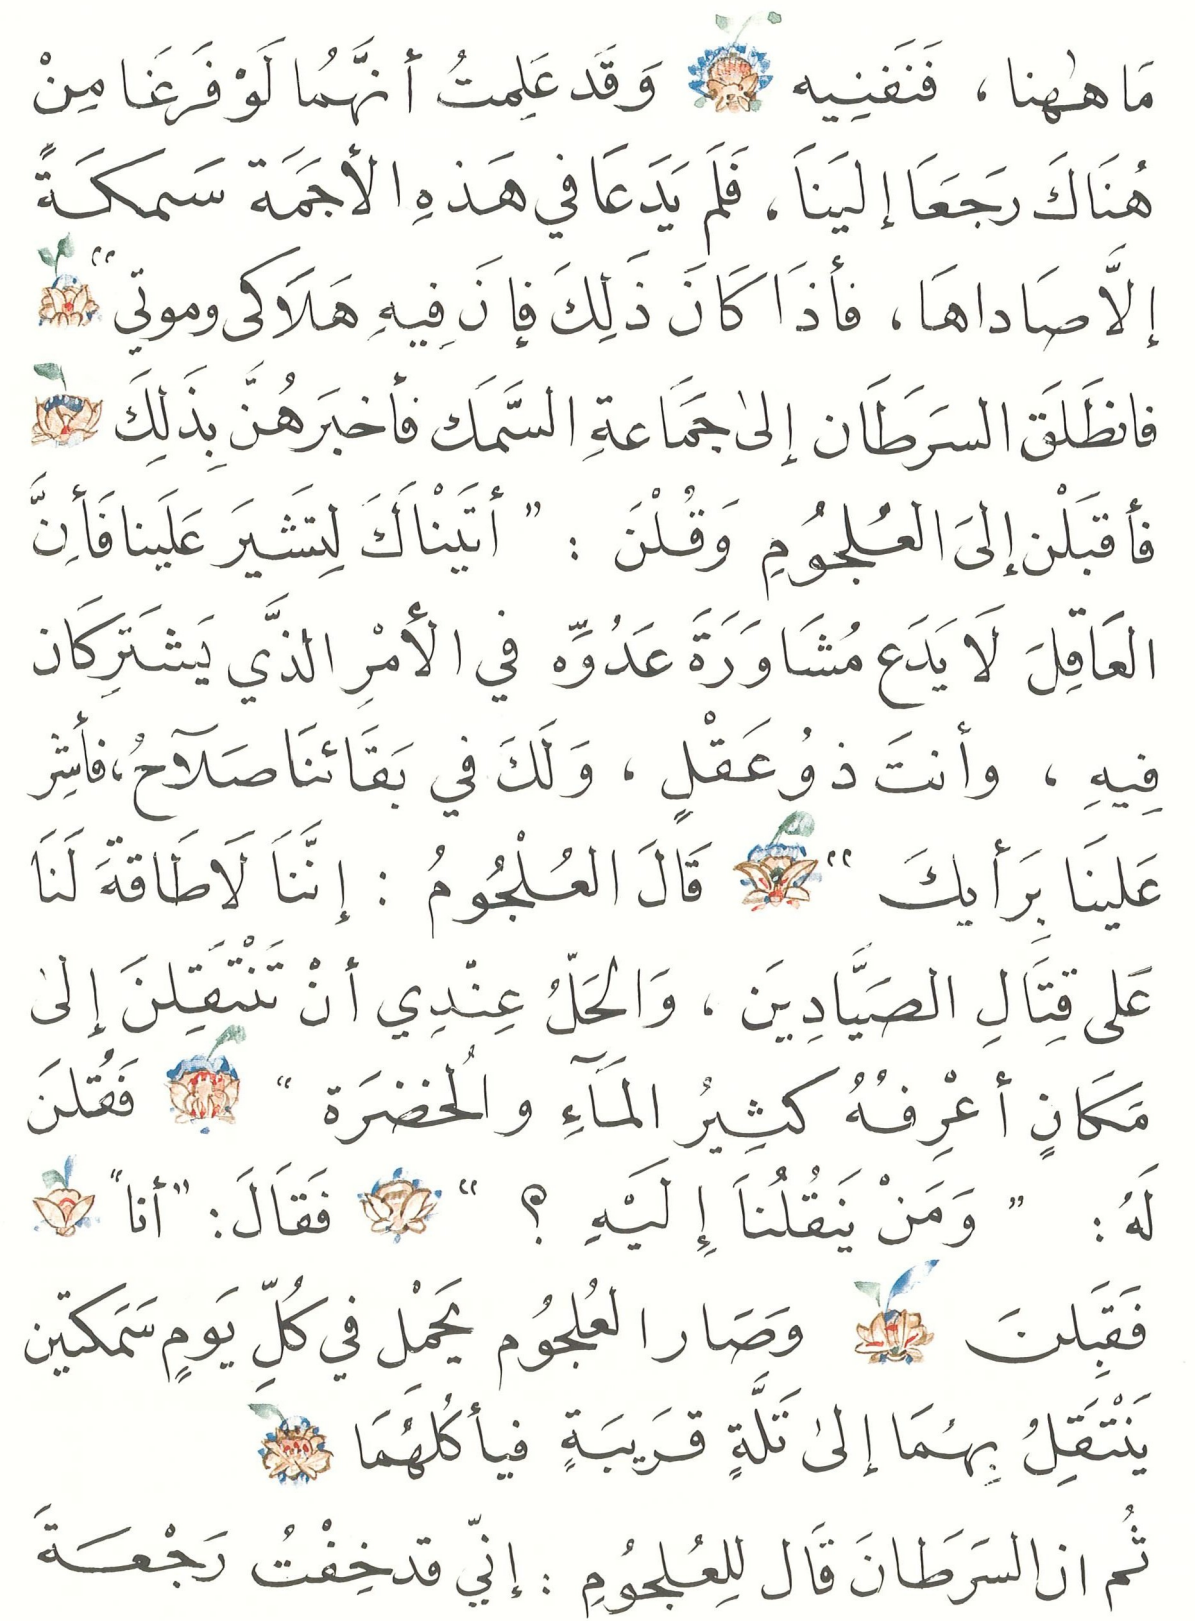 مَا هٰهنا ، فَنَفنِيه وَقَد عَلِمتُ أنهَّمُا لَوْ فَرَغَا مِنْ
هُنَاكَ رَجَعَا إليَناَ ، فَلَم يَدَعَا في هَذهِ الأجَمَة سَمكَةً
إلاَّ صَاداهَا ، فأذَا كَانَ ذَلِكَ فإنَ فِيهِ هَلَاكى وموتي “
فانطَلَقَ السَرَطَان إلىٰ جَمَاعةِ السَّمَك فأخبَرَهُنَّ بِذَلِكَ
فأقبَلْن إلىَ العُلجُومِ وَقُلْنَ : ” أتَيْنَاكَ لِتَشيرَ عَلَينا فَأِنَّ
العَاقِلَ لَا يَدَع مُشَاوَرَةَ عَدُوّه في الأمْرِ الذَّي يَشتَرِكَان
فِيهِ ، وأنتَ ذوُ عَقْلٍ ، وَلَكَ في بَقَائنَا صَلآحُ ، فأشِر
عَلينَا بِرَأيكَ “ قَالَ العُلْجُومُ : إنَّنَا لَا طَاقةَ لَنَا
عَلى قِتَالِ الصَيَّادِينَ ، وَالحَلّ عِنْدِي أنْ تَنْتَقِلنَ إلىٰ
مَكَانٍ أعْرِفهُُ كثِيرُ المَآءِ والُخضرَة “ فَقُلنَ
لَهُ : ” وَمَنْ يَنقُلُنَا إِليَهِْ ؟ “ فَقَالَ : ”أنا“
فَقَبِلنَ وصَار العُلجُوُم يَحمْل في كُلّ يَومٍ سَمَكتيّن
يَنْتَقِلُ بِهمَا إلىٰ تَلَّةٍ قَريبَةٍ فيأكُلهُمَا
ثُم ان السَرَطانَ قَال لِلِعُلجُومِ : إنيّ قد خِفْتُ رَجْعَةَ